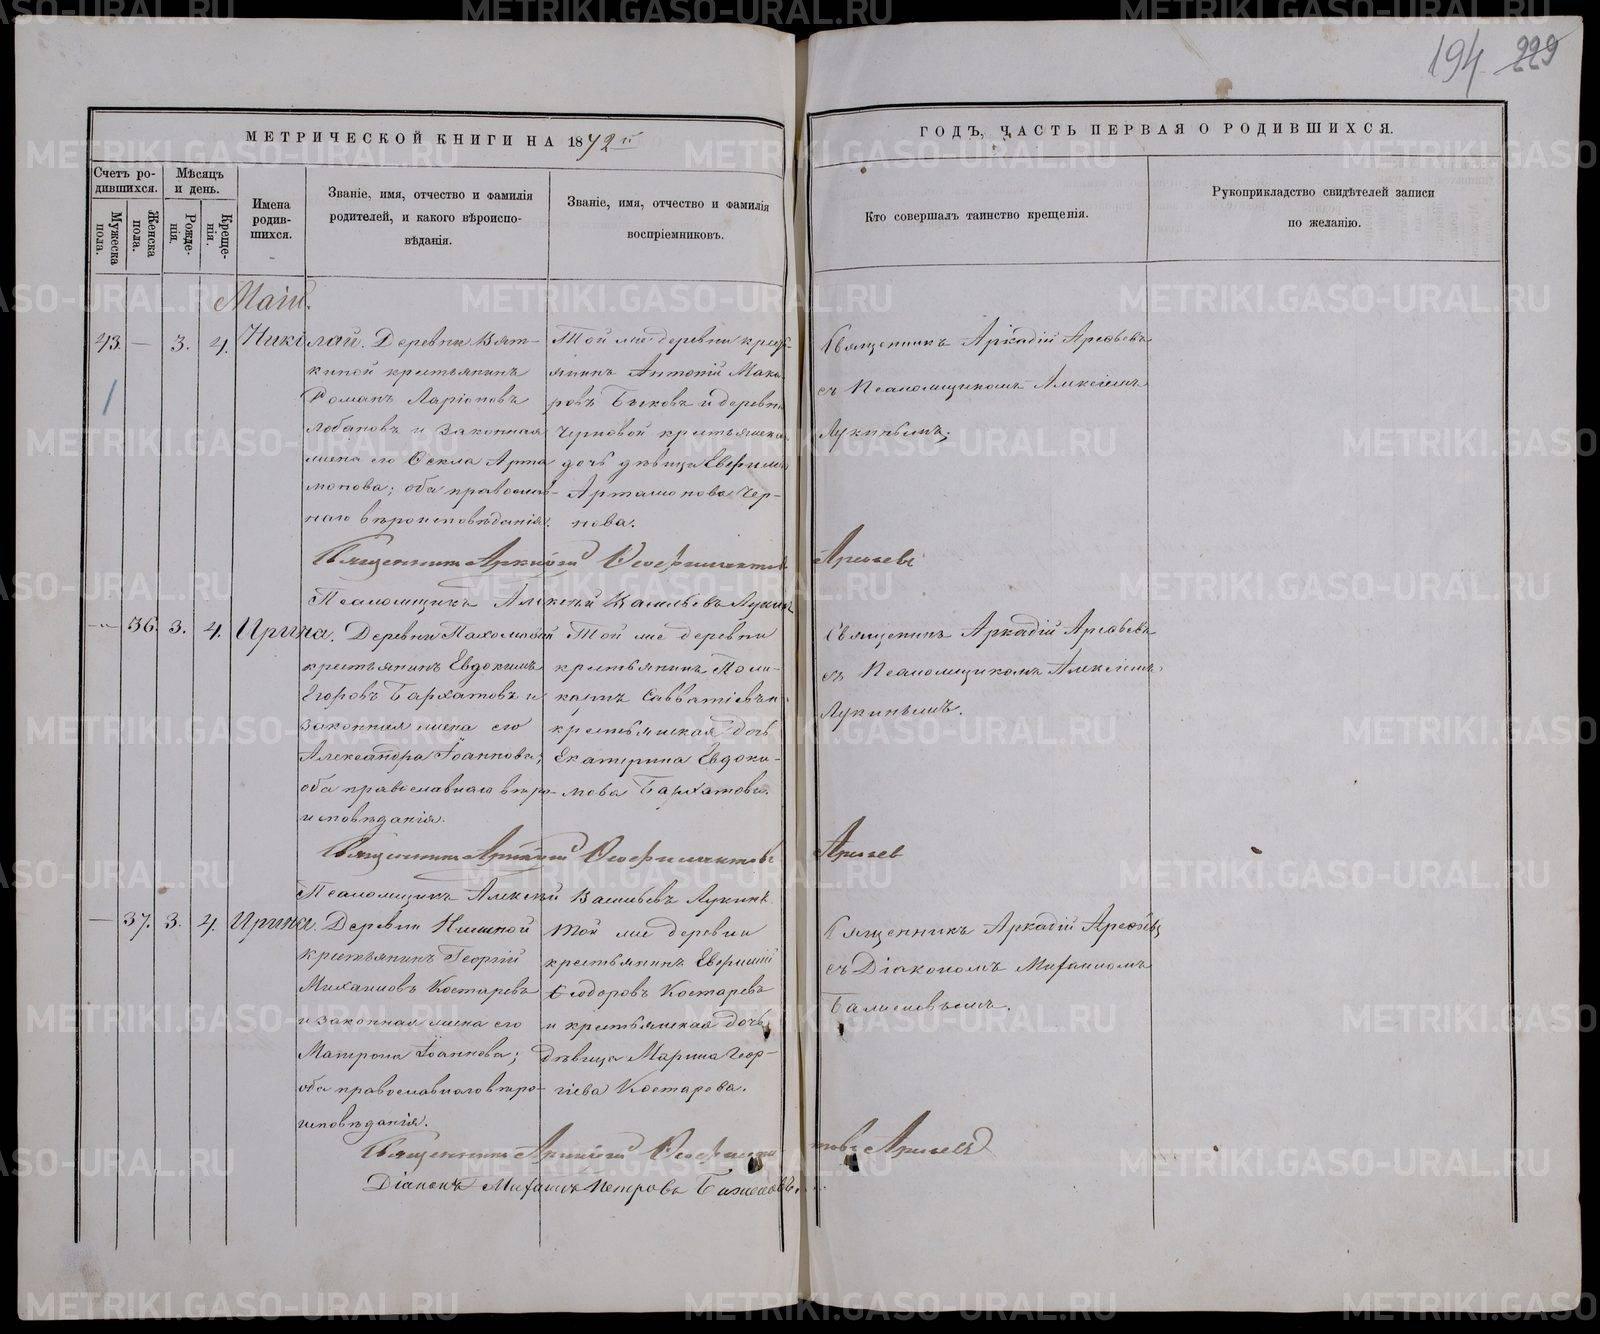 194 229
МЕТРИЧЕСКОЙ КНИГИ НА 1872й
ГОДЪ, ЧАСТЬ ПЕРВАЯ О РОДИВШИХСЯ.
Счетъ ро-
дившихся.
Мужеска
пола.
Женска
пола.
Мѣсяцъ
и день.
Рожде-
нія.
Креще-
нія.
Имена
родив-
шихся.
Званіе, имя, отчество и фамилія
родителей, и какого вѣроиспо-
вѣданія.
Званіе, имя, отчество и фамилія
воспріемниковъ.
Кто совершалъ таинство крещенія.
Рукоприкладство свидѣтелей записи
по желанію.
Маій.
43. — 3. 4. Николай. Деревни Вят-
киной крестьянинъ
Романъ Ларіоновъ
Лобановъ и законная
жена его Ѳекла Арта
монова; оба православ-
наго вѣроисповѣданія.
Той же деревни крест-
янинъ Антоній Мака
ровъ Быковъ и деревни
Черновой крестьянская
дочь дѣвица Евфимія
Артамонова Чер-
нова.
Священникъ Аркадій Арефьевъ
съ Псаломщикомъ Алексіемъ
Лукинымъ;
Священникъ Аркадій Ѳеофилактовъ Арефьевъ
Псаломщикъ Алексій Васильевъ Лукинъ
— 36. 3. 4. Ирина. Деревни Пахомовой
крестьянинъ Евдокимъ
Егоровъ Бархатовъ и
законная жена его
Александра Іоаннова;
оба православнаго вѣро-
исповѣданія.
Той же деревни
крестьянинъ Поли-
карпъ Савватіевъ и
крестьянская дочь
Екатерина Евдоки-
мова Бархатовы.
Священникъ Аркадій Арефьевъ
съ Псаломщикомъ Алексіемъ
Лукинымъ.
Священникъ Аркадій Ѳеофилактовъ Арефьев
Псаломщикъ Алексій Васильевъ Лукинъ
— 37. 3. 4. Ирина. Деревни Нижной
крестьянинъ Георгій
Михаиловъ Костаревъ
и законная жена его
Матрона Іоаннова;
оба православнаго вѣро-
исповѣданія.
Той же деревни
крестьянинъ Евфимій
Ѳеодоровъ Костаревъ
и крестьянская дочь
дѣвица Марина Геор-
гіева Костарева.
Священникъ Аркадій Арефьевъ
съ Діакономъ Михаиломъ
Священникъ Аркадій Ѳеофилактовъ Арефьевъ
Діаконъ Михаилъ Петровъ
METRIKI.GASO-URAL.RU